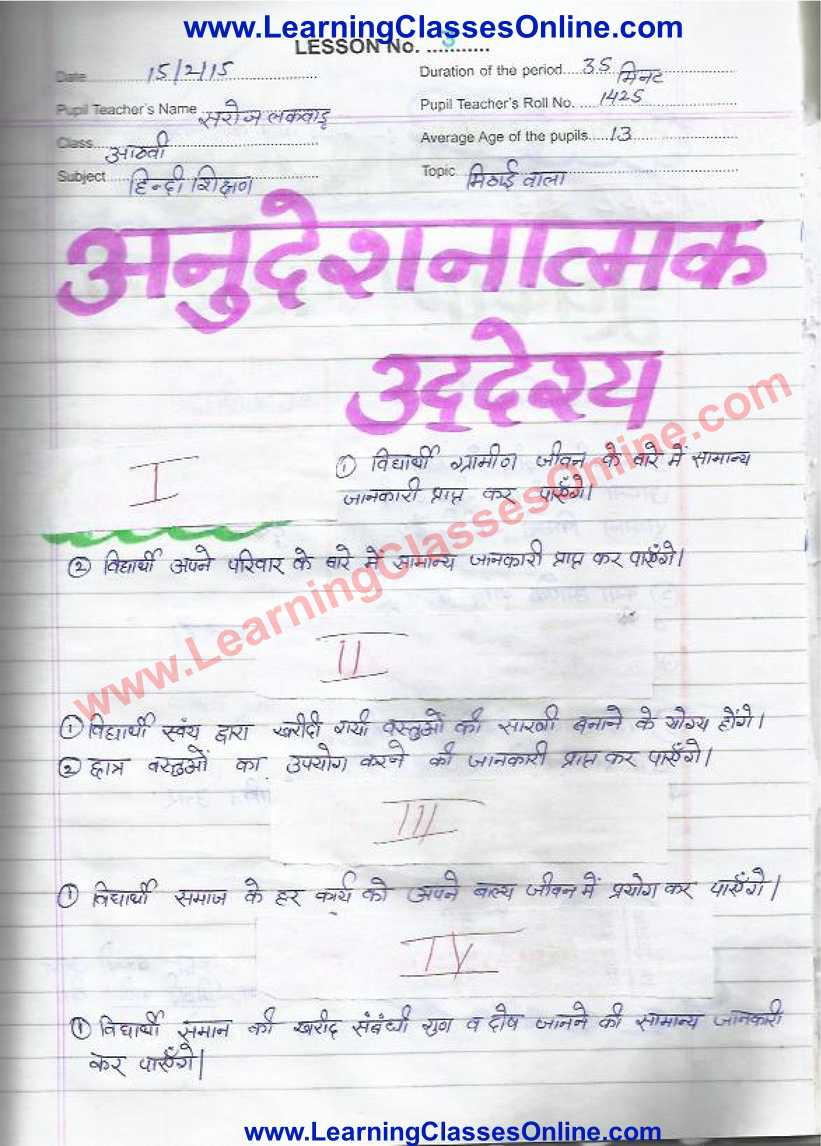 www.LearningClassesOnline.com
LESSON No. ....3.......
Date 15/2/15 Duration of the period 35 मिनट
Pupil Teacher's Name सरोज लकवाड़ Pupil Teacher's Roll No. 1425
Class आठवी Average Age of the pupils 13
Subject हिन्दी शिक्षण Topic मिठाई वाला
अनुदेशनात्मक
उद्देश्य
I
① विद्यार्थी ग्रामीण जीवन के बारे में सामान्य
जानकारी प्राप्त कर पाएँगे।
② विद्यार्थी अपने परिवार के बारे में सामान्य जानकारी प्राप्त कर पाएँगे।
www.LearningClassesOnline.com
II
① विद्यार्थी स्वंय द्वारा खरीदी गयी वस्तुओं की सारणी बनाने के योग्य होंगे।
② छात्र वस्तुओं का उपयोग करने की जानकारी प्राप्त कर पाएँगे।
III
① विद्यार्थी समाज के हर कार्य को अपने बाल्य जीवन में प्रयोग कर पाएँगे।
IV
① विद्यार्थी समान की खरीद संबंधी गुण व दोष जानने की सामान्य जानकारी
कर पाएँगे।
www.LearningClassesOnline.com